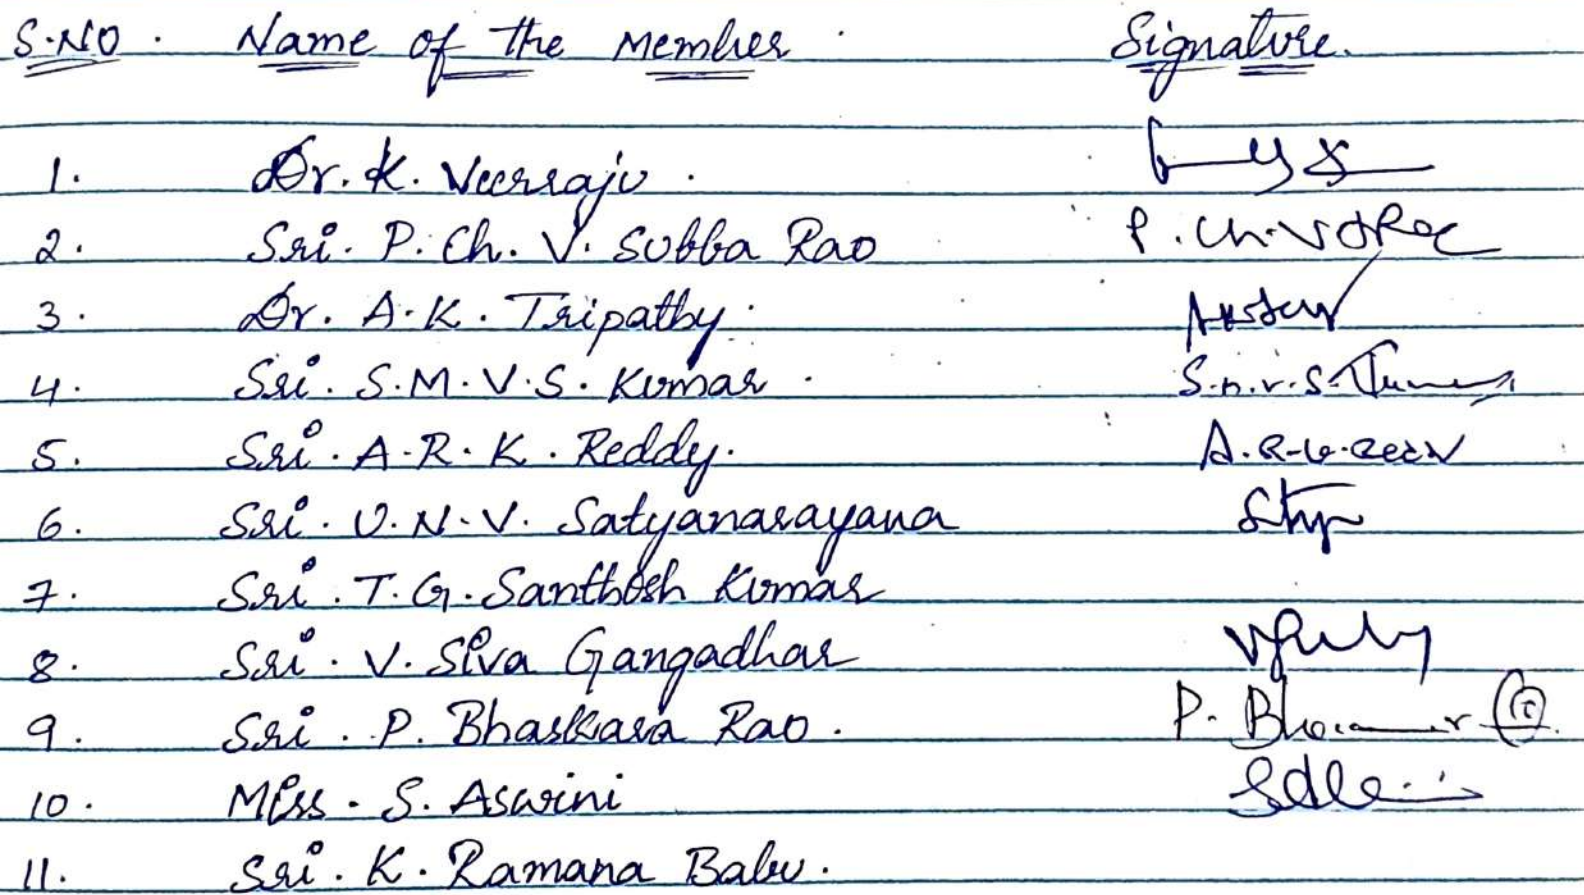 S.NO. Name of the Member Signature.
1. Dr. K. Veerraju.
2. Sri. P. Ch. V. Subba Rao
3. Dr. A.K. Tripathy.
4. Sri. S.M.V.S. Kumar.
5. Sri. A.R.K. Reddy.
6. Sri. U.N.V. Satyanarayana
7. Sri. T.G. Santhosh Kumar
8. Sri. V. Siva Gangadhar
9. Sri. P. Bhaskara Rao.
10. Miss. S. Aswini
11. Sri. K. Ramana Babu.